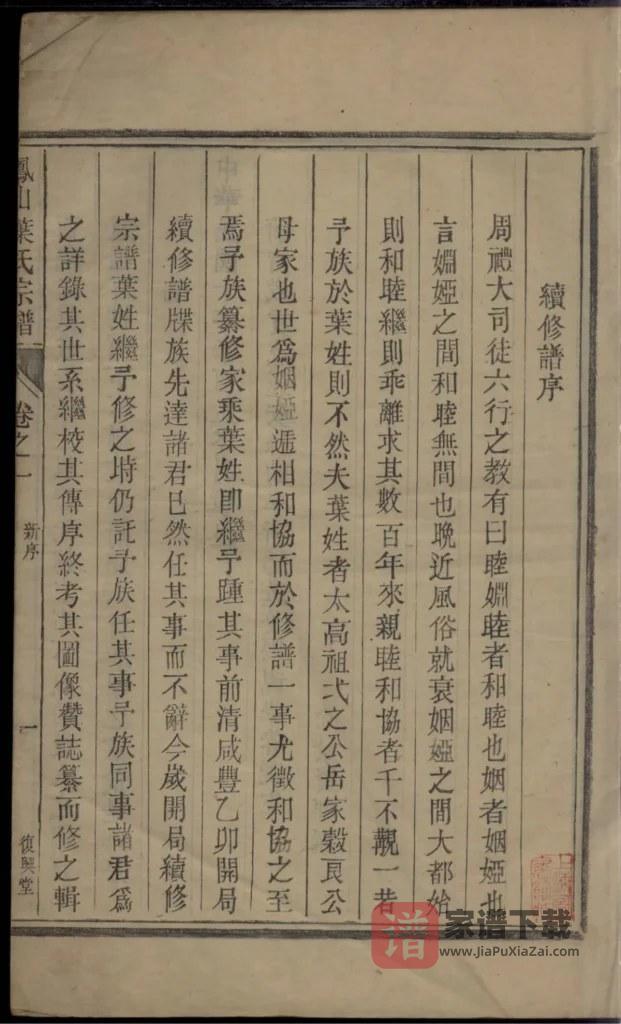 續修譜序
周禮大司徒六行之教有曰睦婣睦者和睦也姻者姻婭也
言婣婭之間和睦無間也晚近風俗就衰姻婭之間大都始
則和睦繼則乖離求其數百年來親睦和協者千不覯一者
予族於葉姓則不然夫葉姓者太高祖弍之公岳家穀艮公
母家也世爲姻婭遞相和協而於修譜一事尤徵和協之至
焉予族纂修家乘葉姓卽繼予踵其事前清咸豐乙卯開局
續修譜牒族先達諸君已然任其事而不辭今歲開局續修
宗譜葉姓繼予修之時仍託予族任其事予族同事諸君爲
之詳錄其世系繼校其傳序終考其圖像贊誌纂而修之輯
鳳山葉氏宗譜 卷之一 新序 一 復興堂
谱 家谱下载
www.JiaPuXiaZai.com